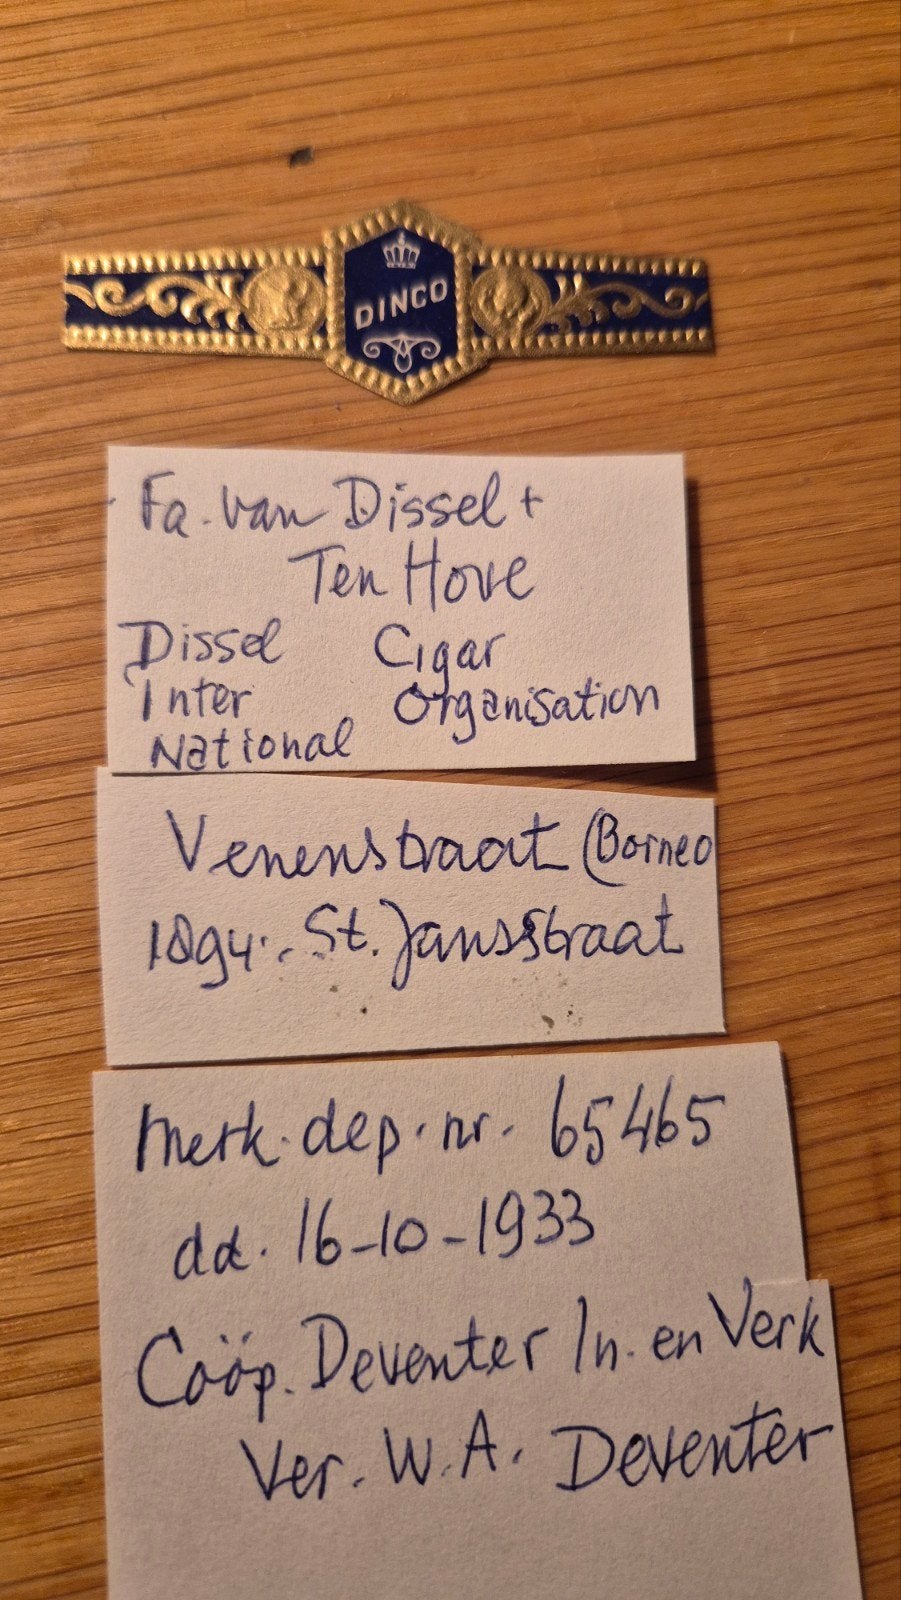 DINCO
Fa. van Dissel +
Ten Hove
Dissel Cigar
Inter Organisation
National
Venenstraat (Borneo
1894. St. Jansstraat
Merk. dep. nr. 65465
dd. 16-10-1933
Coöp. Deventer In. en Verk
Ver. W.A. Deventer